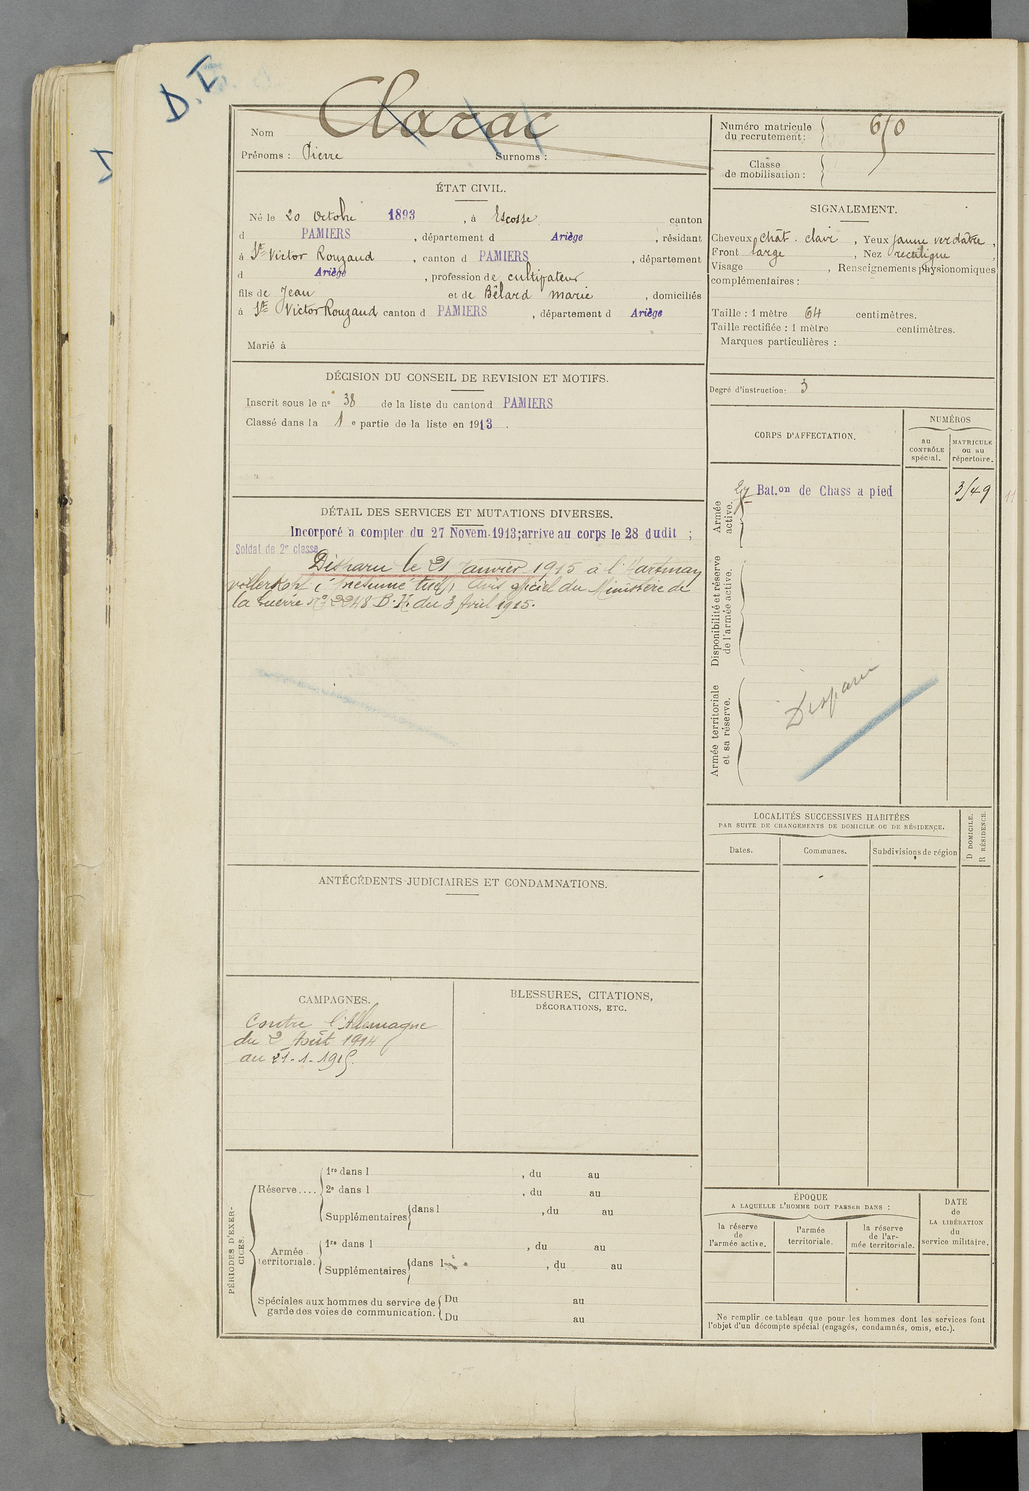 D.I.
Nom Clarac
Prénoms : Pierre Surnoms :
Numéro matricule
du recrutement: 650
Classe
de mobilisation :
ÉTAT CIVIL.
Né le 20 Octobre 1893, à Escosse canton
d PAMIERS, département d Ariège, résidant
à St Victor Rouzaud, canton d PAMIERS, département
d Ariège, profession de cultivateur
fils de Jean et de Bélard Marie, domiciliés
à St Victor Rouzaud canton d PAMIERS, département d Ariège
Marié à
SIGNALEMENT.
Cheveux chât. clair, Yeux jaune verdâtre,
Front large, Nez rectiligne
Visage , Renseignements physionomiques
complémentaires :
Taille : 1 mètre 64 centimètres.
Taille rectifiée : 1 mètre centimètres.
Marques particulières :
Degré d'instruction: 3
DÉCISION DU CONSEIL DE REVISION ET MOTIFS.
Inscrit sous le n° 38 de la liste du canton d PAMIERS
Classé dans la 1e partie de la liste en 1913.
DÉTAIL DES SERVICES ET MUTATIONS DIVERSES.
Incorporé à compter du 27 Novem. 1913; arrive au corps le 28 dudit ;
Soldat de 2e classe
Disparu le 21 Janvier 1915 à l'Hartman
(présumé tué) Avis officiel du Ministère de
la Guerre N° 2248 B.K. du 3 Avril 1915.
CORPS D'AFFECTATION.
NUMÉROS
au
CONTRÔLE
spécial.
MATRICULE
ou au
répertoire.
Armée
active.
27 Bat.on de Chass a pied 3149
Disponibilité et réserve
de l'armée active.
Armée territoriale
et sa réserve.
Disparu
LOCALITÉS SUCCESSIVES HABITÉES
PAR SUITE DE CHANGEMENTS DE DOMICILE OU DE RÉSIDENCE.
Dates. Communes. Subdivisions de région
D DOMICILE.
R RÉSIDENCE.
ANTÉCÉDENTS JUDICIAIRES ET CONDAMNATIONS.
CAMPAGNES.
Contre l'Allemagne
du 2 Août 1914
au 21-1-1915.
BLESSURES, CITATIONS,
DÉCORATIONS, ETC.
PÉRIODES D'EXER-
CICES.
Réserve....
1re dans l , du au
2e dans l , du au
Supplémentaires dans l , du au
Armée
territoriale.
1re dans l , du au
Supplémentaires dans l , du au
Spéciales aux hommes du service de
garde des voies de communication.
Du au
Du au
ÉPOQUE
A LAQUELLE L'HOMME DOIT PASSER DANS :
la réserve
de
l'armée active.
l'armée
territoriale.
la réserve
de l'ar-
mée territoriale.
DATE
de
LA LIBÉRATION
du
service militaire.
Ne remplir ce tableau que pour les hommes dont les services font
l'objet d'un décompte spécial (engagés, condamnés, omis, etc.).